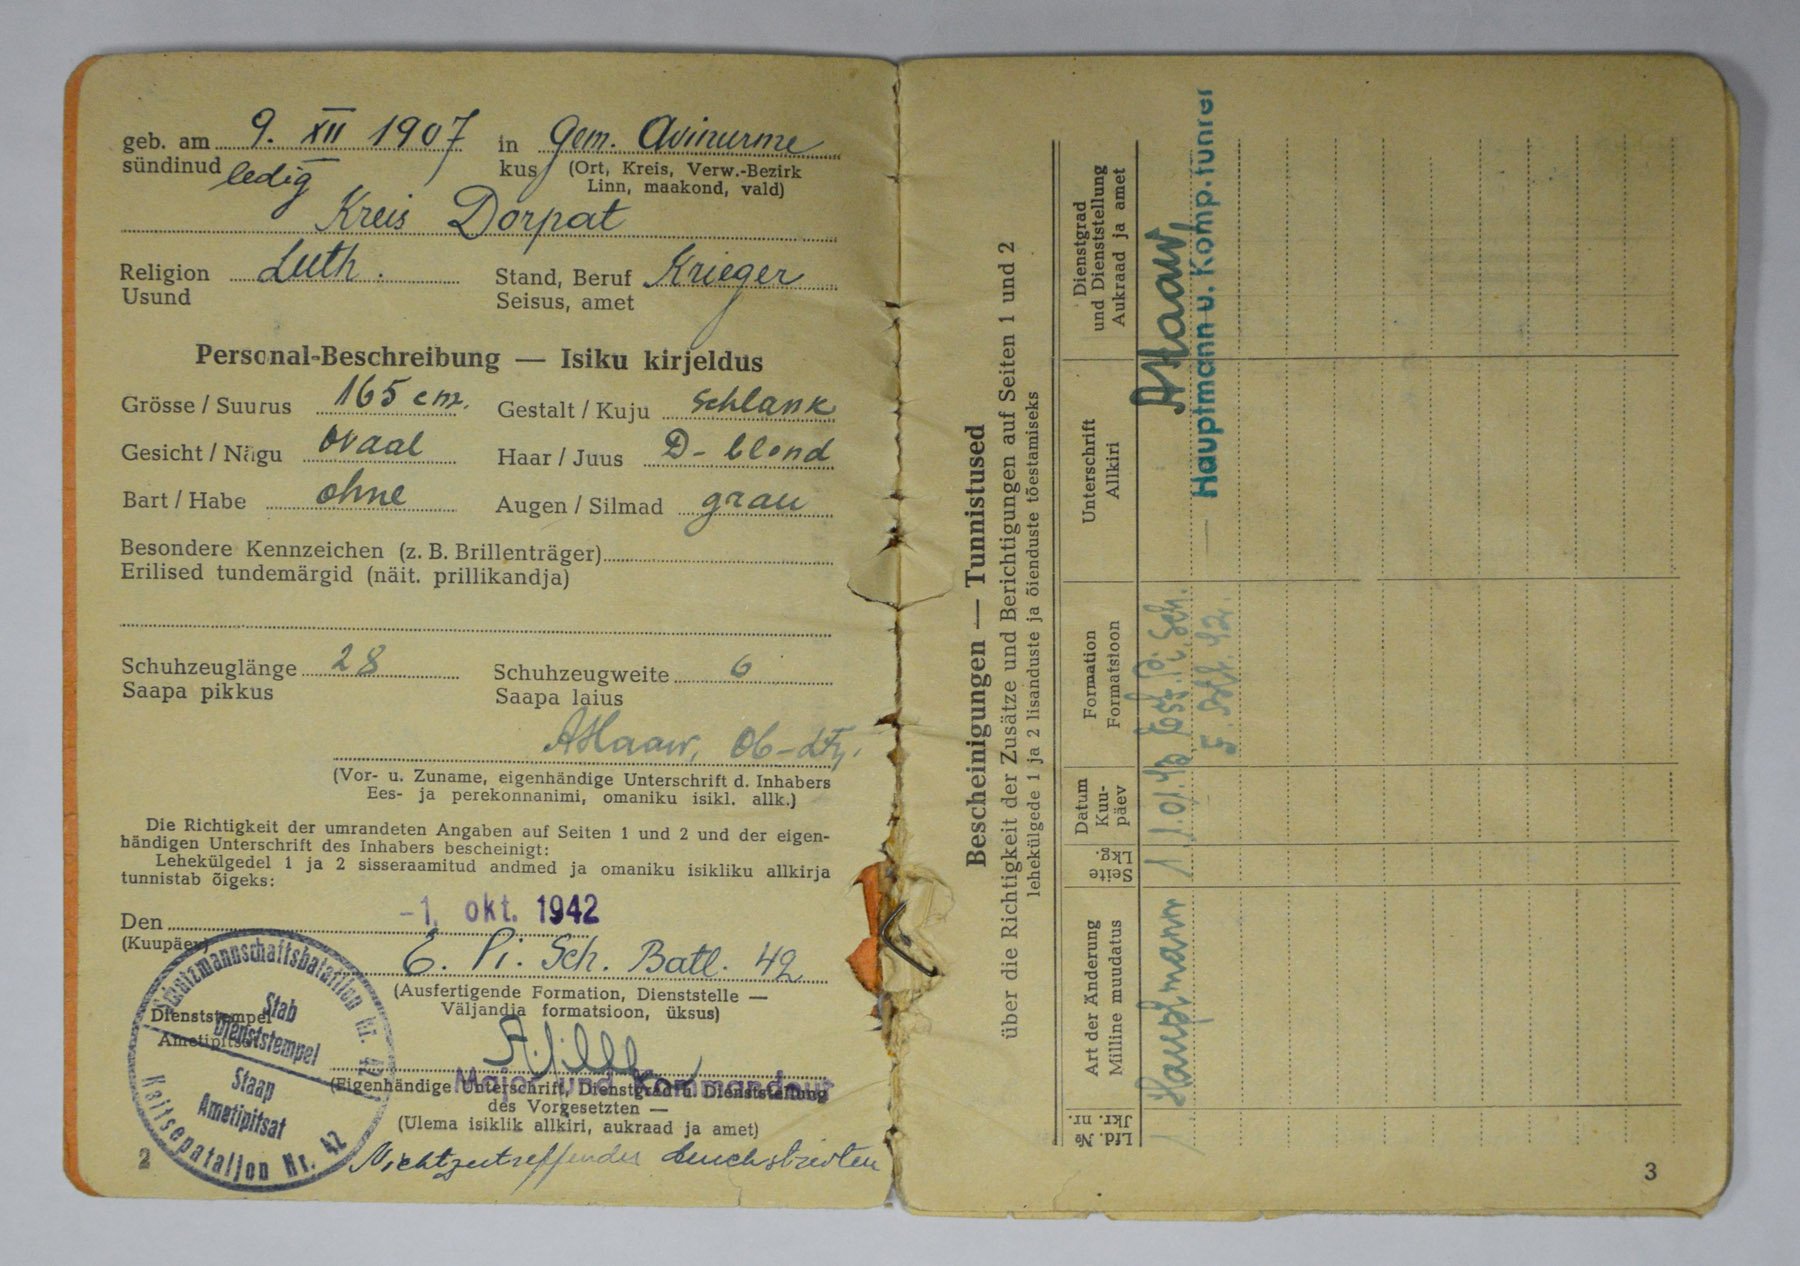 geb. am 9. XII 1907 in Gem. Avinurme
sündinud ledig kus (Ort, Kreis, Verw.-Bezirk
Linn, maakond, vald)
Kreis Dorpat
Religion Luth. Stand, Beruf Krieger
Usund Seisus, amet
Personal-Beschreibung — Isiku kirjeldus
Grösse / Suurus 165 cm. Gestalt / Kuju schlank
Gesicht / Nägu ovaal Haar / Juus D-blond
Bart / Habe ohne Augen / Silmad grau
Besondere Kennzeichen (z. B. Brillenträger)
Erilised tundemärgid (näit. prillikandja)
Schuhzeuglänge 28 Schuhzeugweite 6
Saapa pikkus Saapa laius
(Vor- u. Zuname, eigenhändige Unterschrift d. Inhabers
Ees- ja perekonnanimi, omaniku isikl. allk.)
Die Richtigkeit der umrandeten Angaben auf Seiten 1 und 2 und der eigen-
händigen Unterschrift des Inhabers bescheinigt:
Lehekülgedel 1 ja 2 sisseraamitud andmed ja omaniku isikliku allkirja
tunnistab õigeks:
Den -1. okt. 1942
(Kuupäev)
E. Pi. Sch. Batl. 42
(Ausfertigende Formation, Dienststelle —
Väljandja formatsioon, üksus)
Dienststempel
Ametipitsat
Schutzmannschaftsbataillon Nr. 42
Stab
Dienststempel
Staap
Ametipitsat
Kaitsepataljon Nr. 42
Major und Kommandeur
(Eigenhändige Unterschrift, Dienstgrad u. Dienststellung
des Vorgesetzten —
(Ülema isiklik allkiri, aukraad ja amet)
Nichtzutreffender durchstrichen
2
Bescheinigungen — Tunnistused
über die Richtigkeit der Zusätze und Berichtigungen auf Seiten 1 und 2
lehekülgede 1 ja 2 lisanduste ja õienduste tõestamiseks
Lfd. №
Jkr. nr.
Art der Änderung
Milline mudatus
Seite
Lkg.
Datum
Kuu-
päev
Formation
Formatsioon
Unterschrift
Allkiri
Dienstgrad
und Dienststellung
Aukraad ja amet
1 Hauptmann 1 Est. Pi. Sch.
42.
Hauptmann u. Komp.führer
3